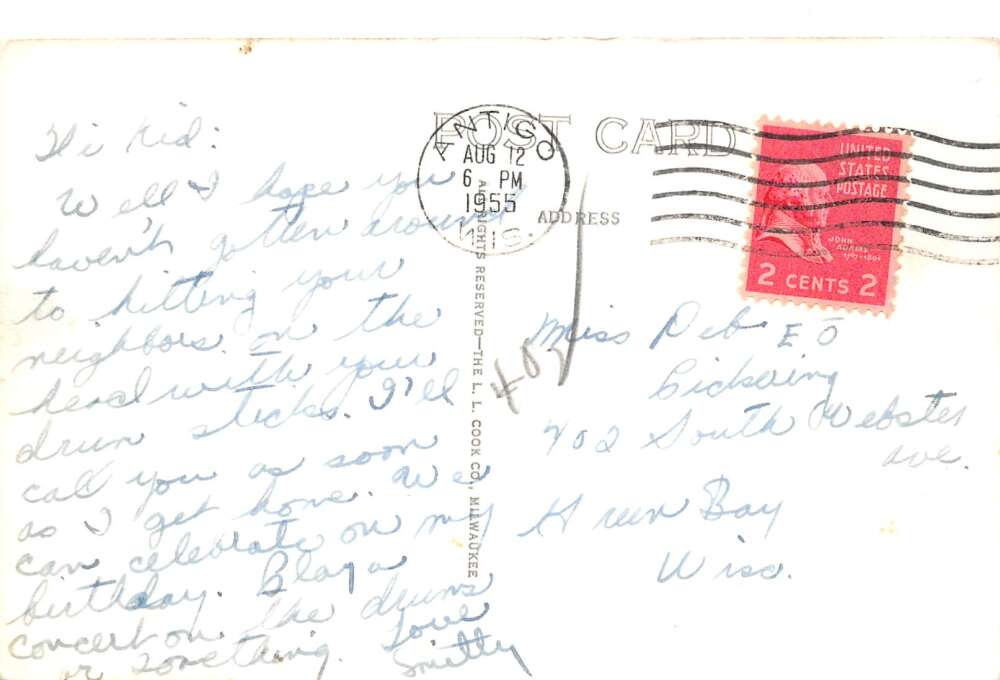 POST CARD
ANTIGO
AUG 12
6 PM
1955
WIS.
ADDRESS
UNITED
STATES
POSTAGE
JOHN
ADAMS
1797-1801
2 CENTS 2
ALL RIGHTS RESERVED—THE L. L. COOK CO., MILWAUKEE
Hi Kid:
Well I hope you
haven't gotten around
to hitting your
neighbors on the
head with your
drum sticks. I'll
call you as soon
as I get home. We
can celebrate on my
birthday. Play a
concert on the drums
or something. Love
Smitty
402
Miss Deb
Pickering
402 South Webster
ave.
Green Bay
Wisc.